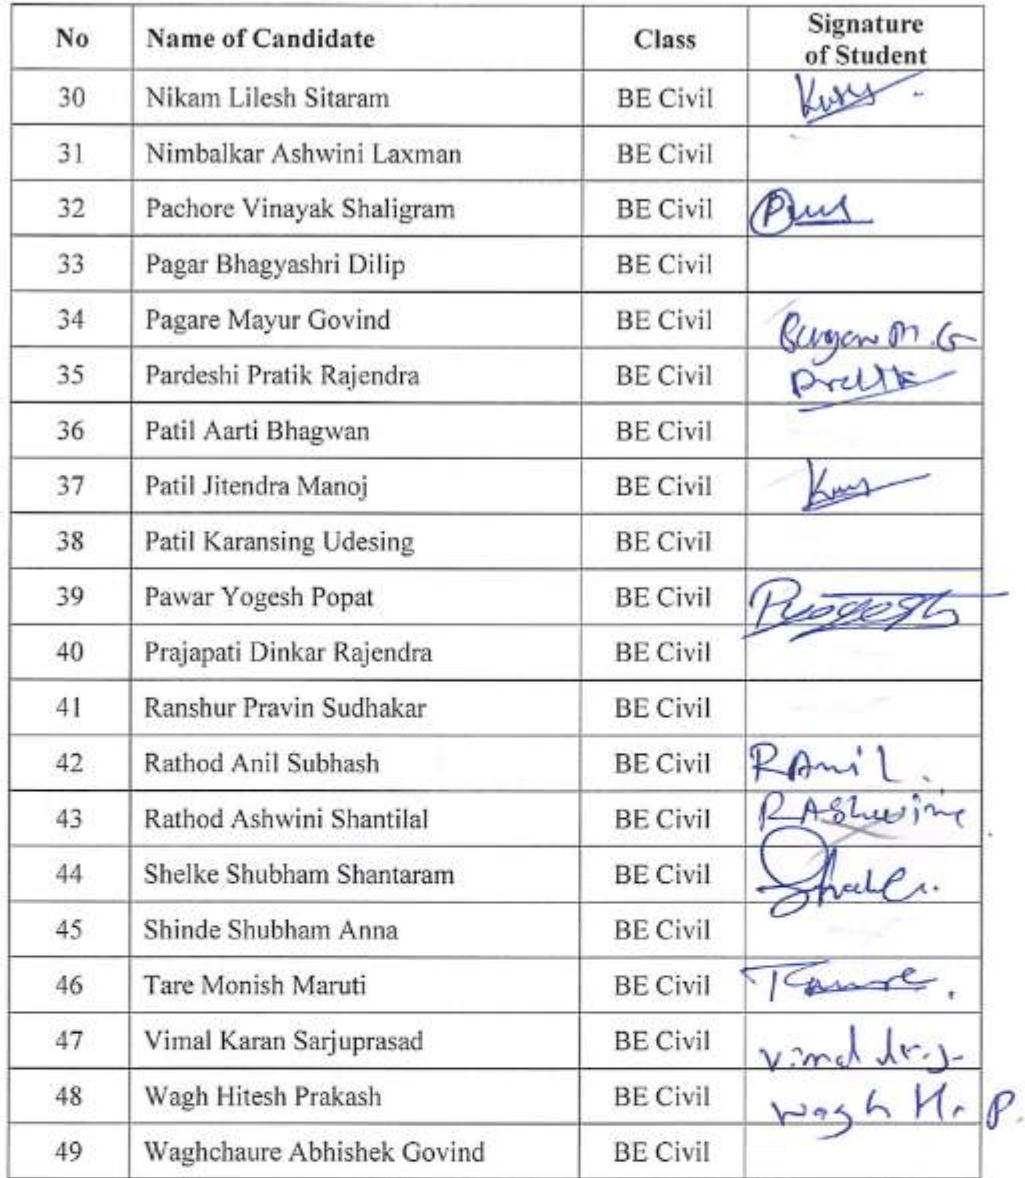 No Name of Candidate Class Signature of Student
30 Nikam Lilesh Sitaram BE Civil
31 Nimbalkar Ashwini Laxman BE Civil
32 Pachore Vinayak Shaligram BE Civil
33 Pagar Bhagyashri Dilip BE Civil
34 Pagare Mayur Govind BE Civil M.G
35 Pardeshi Pratik Rajendra BE Civil Pratik
36 Patil Aarti Bhagwan BE Civil
37 Patil Jitendra Manoj BE Civil
38 Patil Karansing Udesing BE Civil
39 Pawar Yogesh Popat BE Civil
40 Prajapati Dinkar Rajendra BE Civil
41 Ranshur Pravin Sudhakar BE Civil
42 Rathod Anil Subhash BE Civil RAnil.
43 Rathod Ashwini Shantilal BE Civil RAshwini
44 Shelke Shubham Shantaram BE Civil
45 Shinde Shubham Anna BE Civil
46 Tare Monish Maruti BE Civil
47 Vimal Karan Sarjuprasad BE Civil Vimal
48 Wagh Hitesh Prakash BE Civil Wagh H. P.
49 Waghchaure Abhishek Govind BE Civil